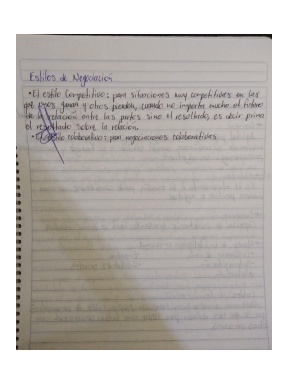 Estilos de Negociación
• El estilo Competitivo: para situaciones muy competitivas en las
que unos ganan y otros pierden, cuando no importa mucho el futuro
de la relación entre las partes sino el resultado, es decir prima
el resultado sobre la relación.
• El estilo colaborativo: para negociaciones colaborativas